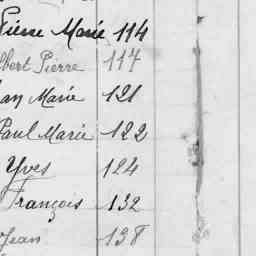 Pierre Marie 114
Albert Pierre 117
Jean Marie 121
Paul Marie 122
Yves 124
François 132
Jean 138